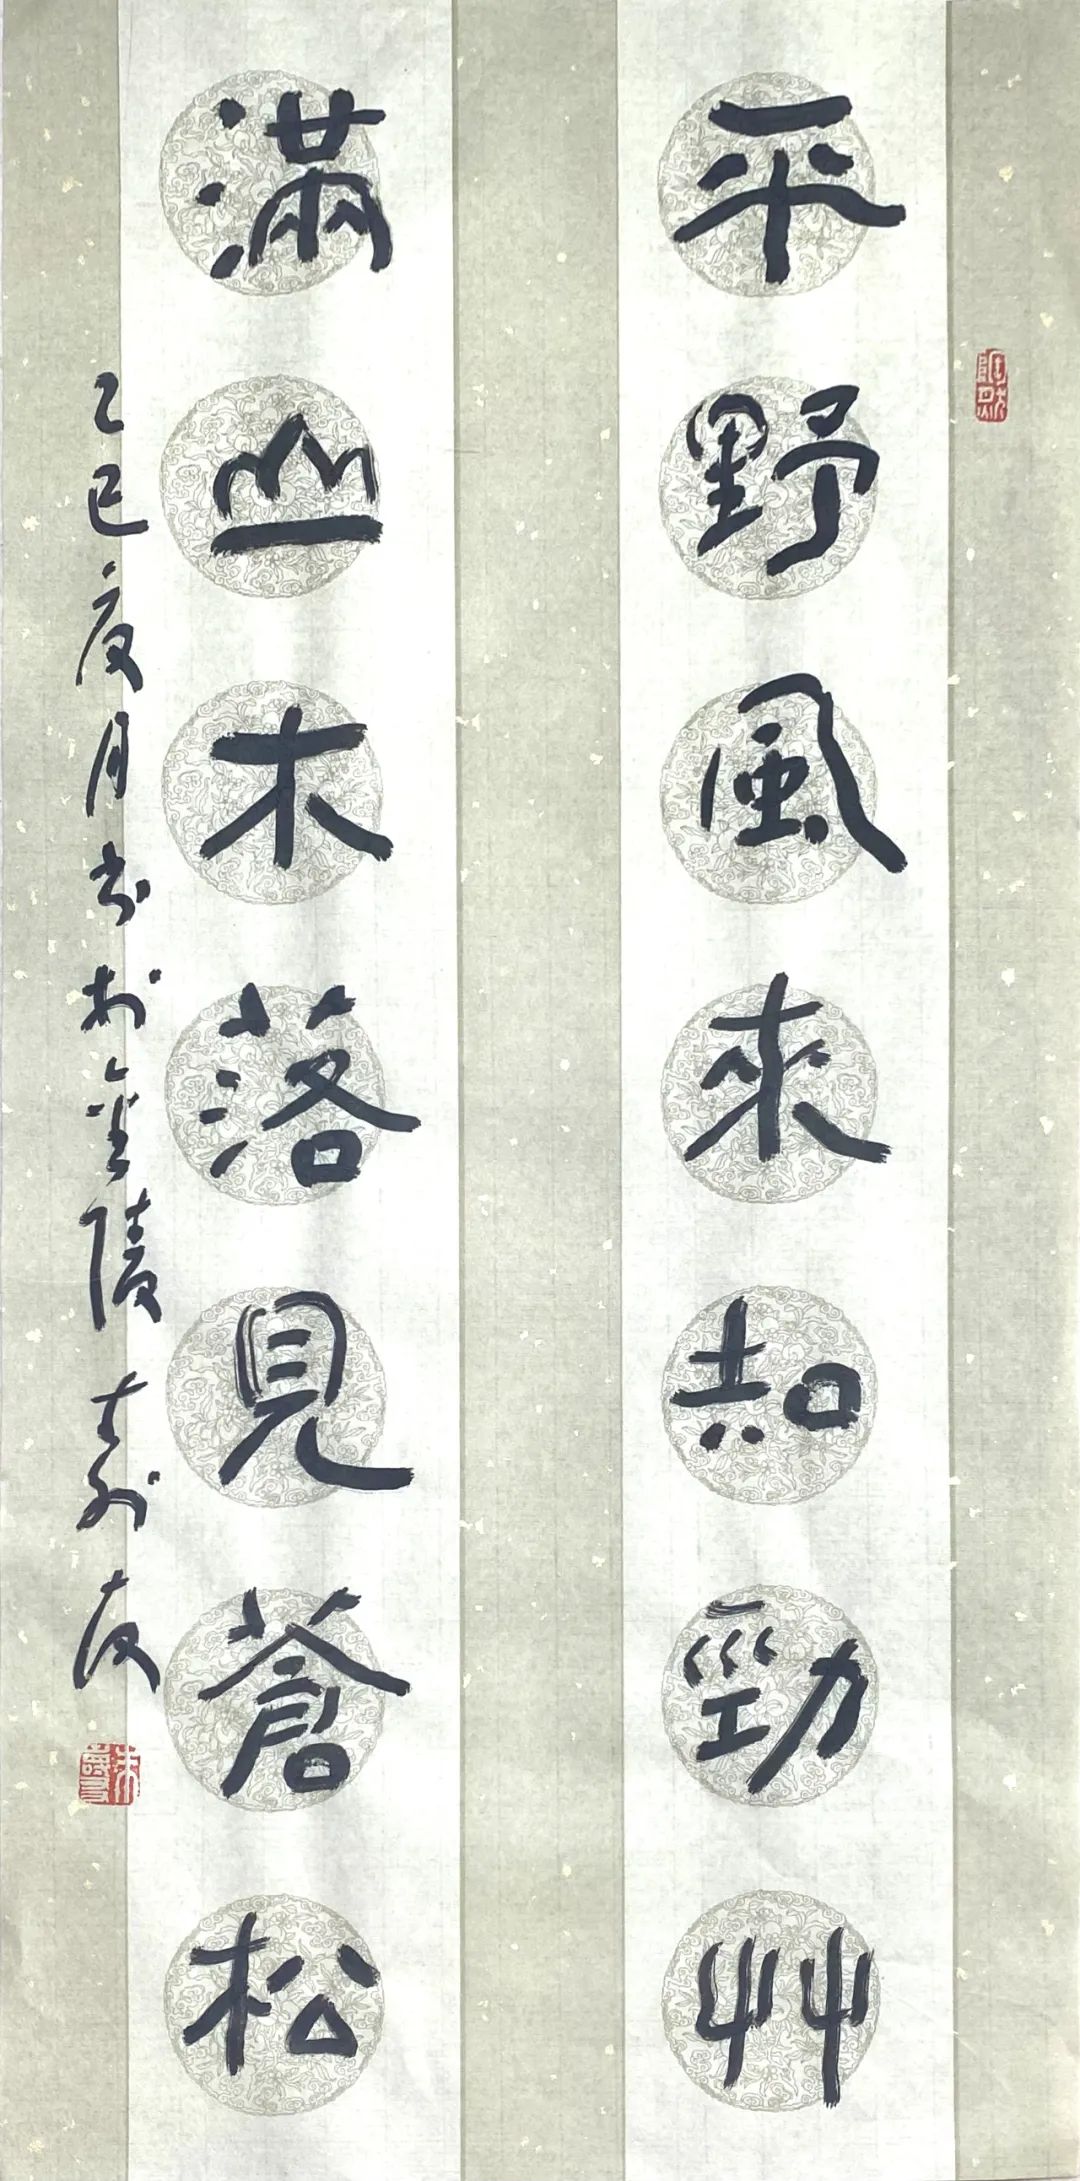 平野風來知勁艸
滿山木落見蒼松
乙巳夏月書於金陵